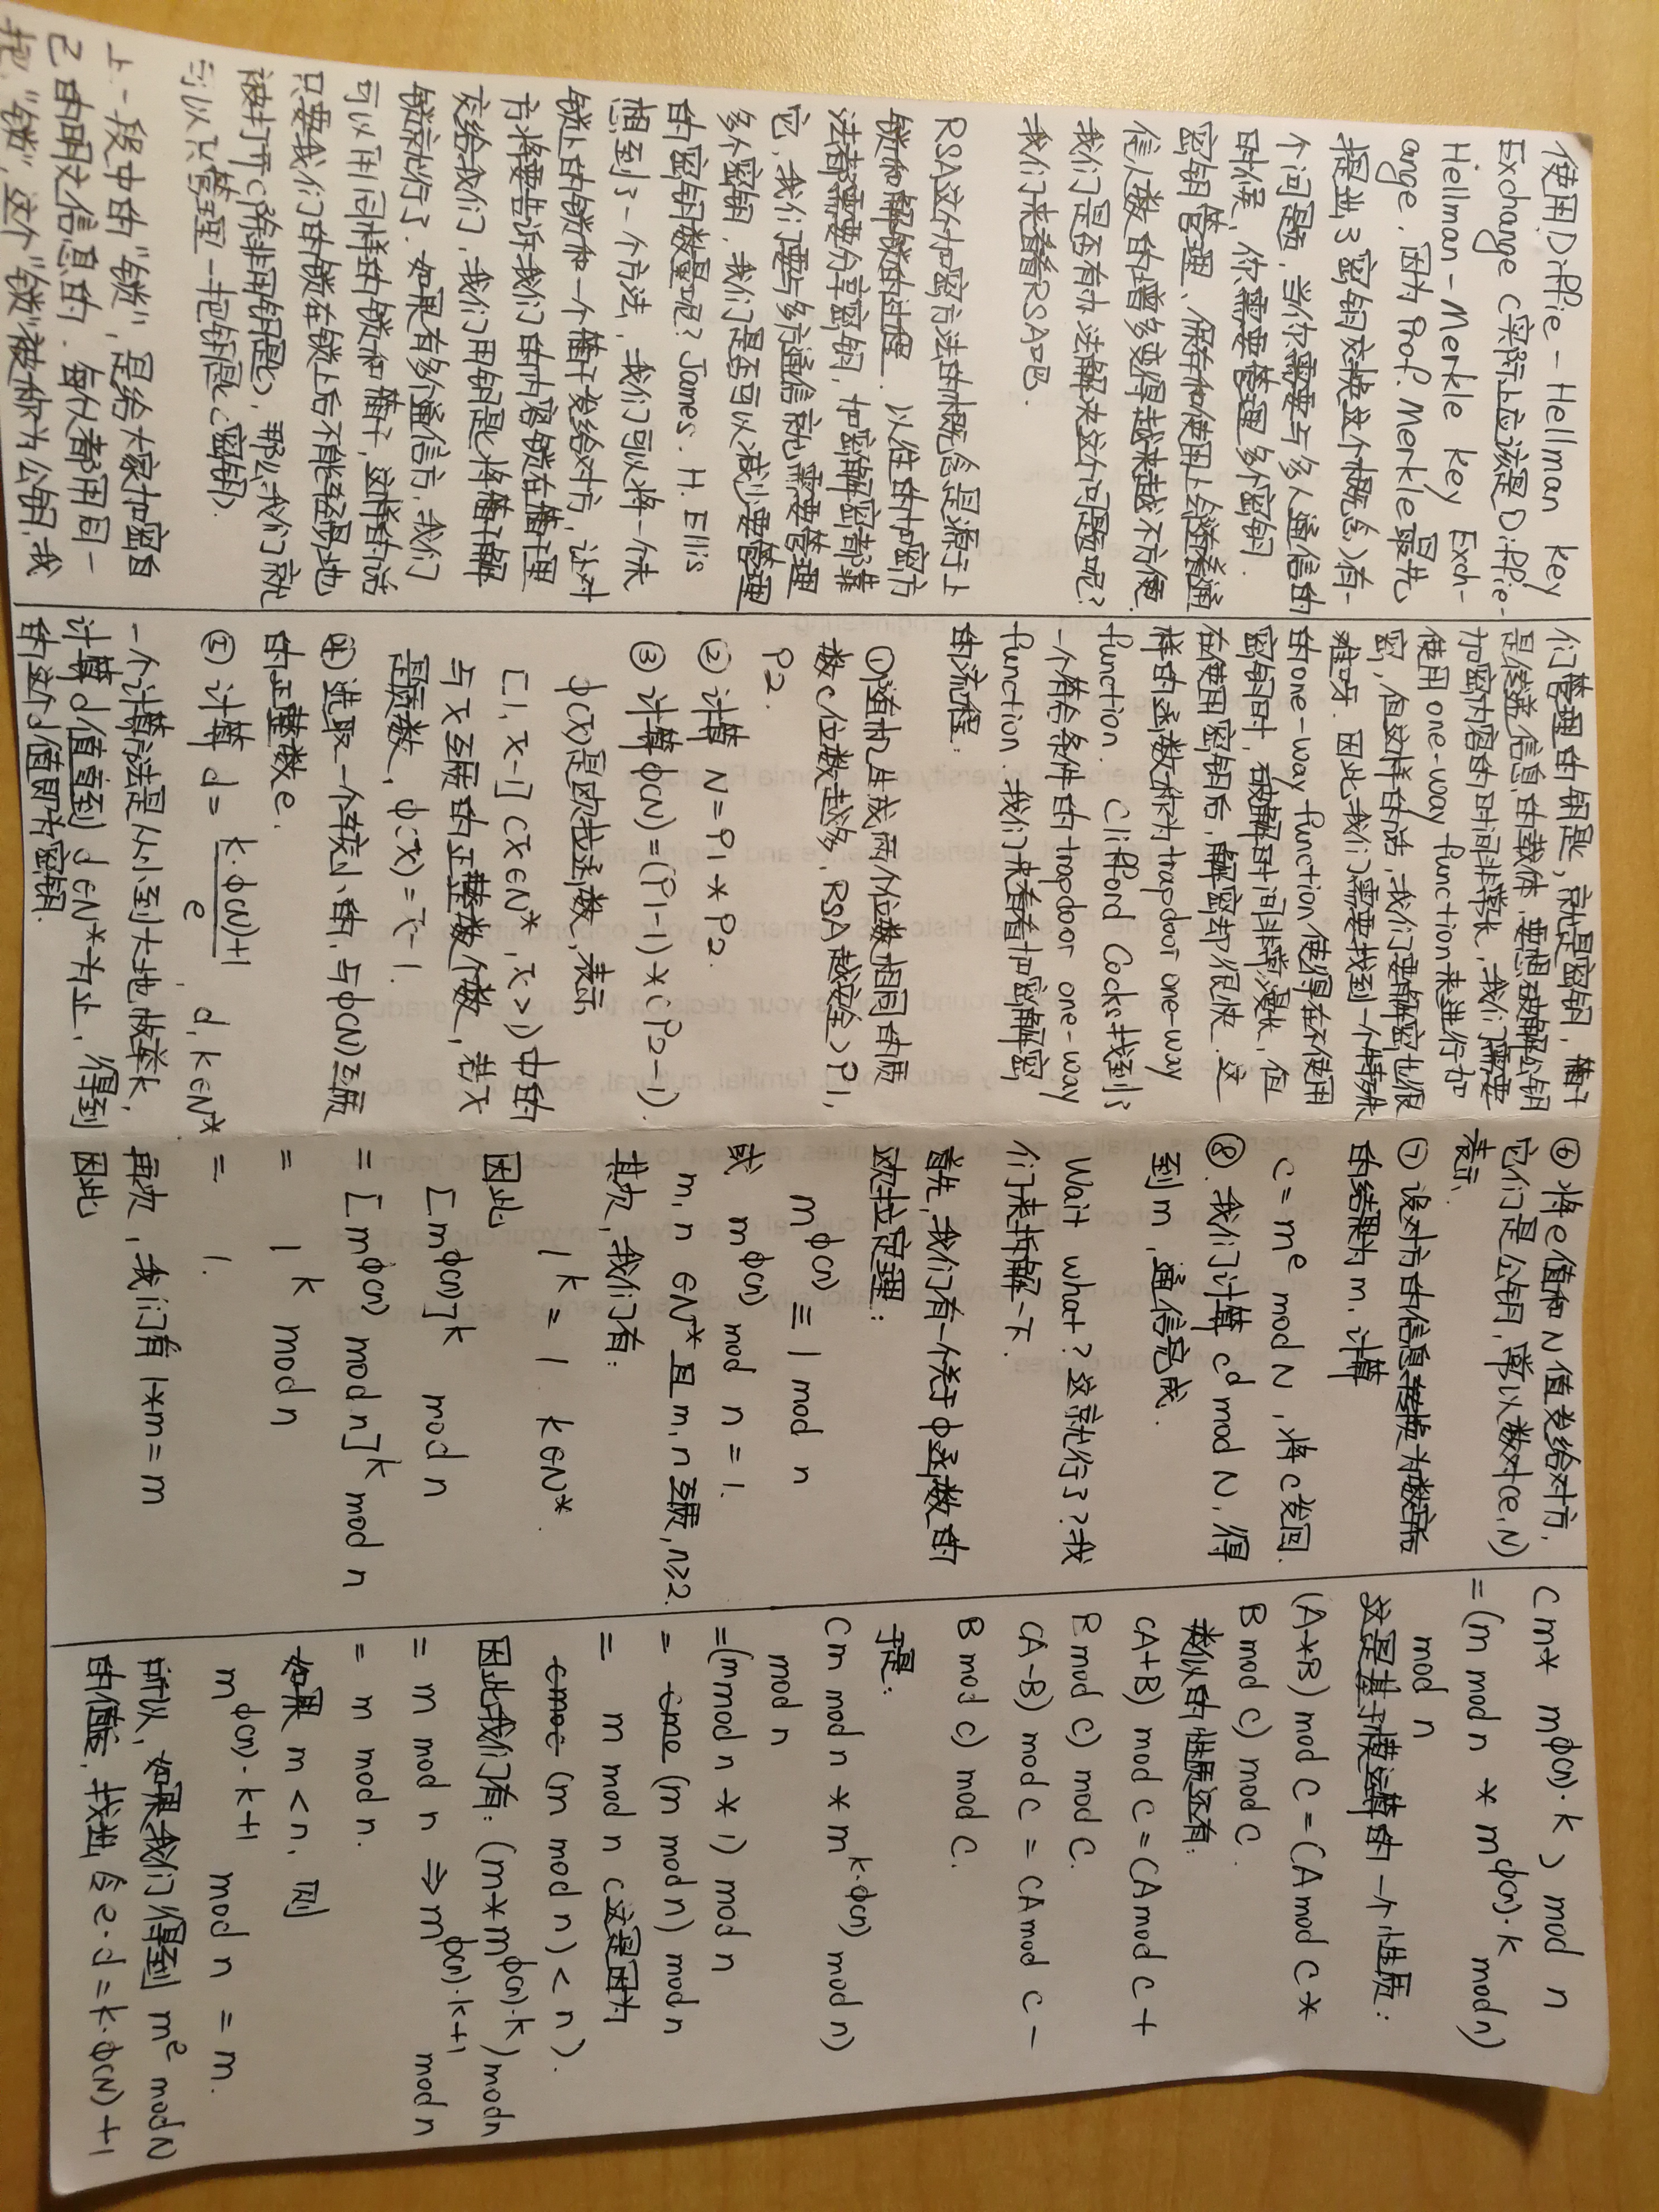 使用Diffie-Hellman Key
Exchange (实际上应该是Diffie-
Hellman-Merkle Key Exch-
ange,因为Prof. Merkle最先
提出了密钥交换这个概念)有一
个问题,当你需要与多人通信的
时候,你需要管理多个密钥.
密钥管理、保存和使用上会随着通
信人数的增多变得越来越不方便.
我们是否有办法解决这个问题呢?
我们来看看RSA吧.
RSA这个加密方法的概念是源于上
锁和解锁的过程. 以往的加密方
法都需要分享密钥,加密解密都靠
它,我们要与多方通信就需要管理
多个密钥,我们是否可以减少要管理
的密钥数量呢? James. H. Ellis
想到了一个方法,我们可以将一个未
锁上的锁和一个箱子发给对方,让对
方将要告诉我们的内容锁在箱子里
交给我们,我们用钥匙将箱子解
锁就行了.如果有多个通信方,我们
可以用同样的锁和箱子,这样的话
只要我们的锁在锁上后不能轻易地
被打开(除非用钥匙),那么我们就
可以只管理一把钥匙(密钥).
上一段中的"锁",是给大家加密自
己的明文信息的.每人都用同一
把"锁",这个"锁"被称为公钥,我
们管理的钥匙,就是密钥,箱子
是传递信息的载体,要想破解公钥
加密内容的时间非常长,我们需要
使用one-way function来进行加
密,但这样的话,我们要解密也很
难呀.因此我们需要找到一个特殊
的one-way function使得在不使用
密钥时,破解时间非常漫长,但
在使用密钥后,解密却很快.这
样的函数称为trapdoor one-way
function. Clifford Cocks找到了
一个符合条件的trapdoor one-way
function.我们来看看加密解密
的流程:
①随机生成两个位数相同的质
数(位数越多,RSA越安全)P1,
P2.
②计算 N=P1*P2.
③计算φ(N)=(P1-1)*(P2-1).
φ(x)是欧拉函数,表示
[1, x-1] (x∈N*, x>1)中的
与x互质的正整数个数,若x
是质数,φ(x)=x-1.
④选取一个较小的,与φ(N)互质
的正整数e.
⑤计算 d= (k·φ(N)+1)/e , d, k∈N*
一个计算方法是从小到大地枚举k,
计算d值直到 d∈N*为止,得到
的这个d值即为密钥.
⑥将e值和N值发给对方,
它们是公钥,常以数对(e,N)
表示.
⑦设对方的信息转换为数字后
的结果为m,计算
c=m^e mod N,将c发回.
⑧.我们计算 c^d mod N,得
到m,通信完成.
Wait what?这就行了?我
们来拆解一下.
首先,我们有一个关于φ函数的
欧拉定理:
m^φ(n) ≡ 1 mod n
或 m^φ(n) mod n = 1.
m, n ∈N*且m,n互质,n≥2.
其次,我们有:
1^k = 1 k∈N*.
因此
[m^φ(n)]^k mod n
= [m^φ(n) mod n]^k mod n
= 1^k mod n
= 1.
再次,我们有1*m=m
因此
(m* m^φ(n)·k) mod n
=(m mod n * m^φ(n)·k mod n)
mod n
这是基于模运算的一个性质:
(A*B) mod C=(A mod C *
B mod C) mod C.
类似的性质还有:
(A+B) mod C=(A mod C +
B mod C) mod C.
(A-B) mod C = (A mod C -
B mod C) mod C.
于是:
(m mod n * m^k·φ(n) mod n)
mod n
=(m mod n * 1) mod n
= (m mod n) mod n
= m mod n (这是因为
(m mod n) < n).
因此我们有: (m*m^φ(n)·k) mod n
= m mod n ⇒ m^φ(n)·k+1 mod n
= m mod n.
如果 m<n,则
m^φ(n)·k+1 mod n = m.
所以,如果我们得到 m^e mod N
的值后,找出令e·d=k·φ(N)+1